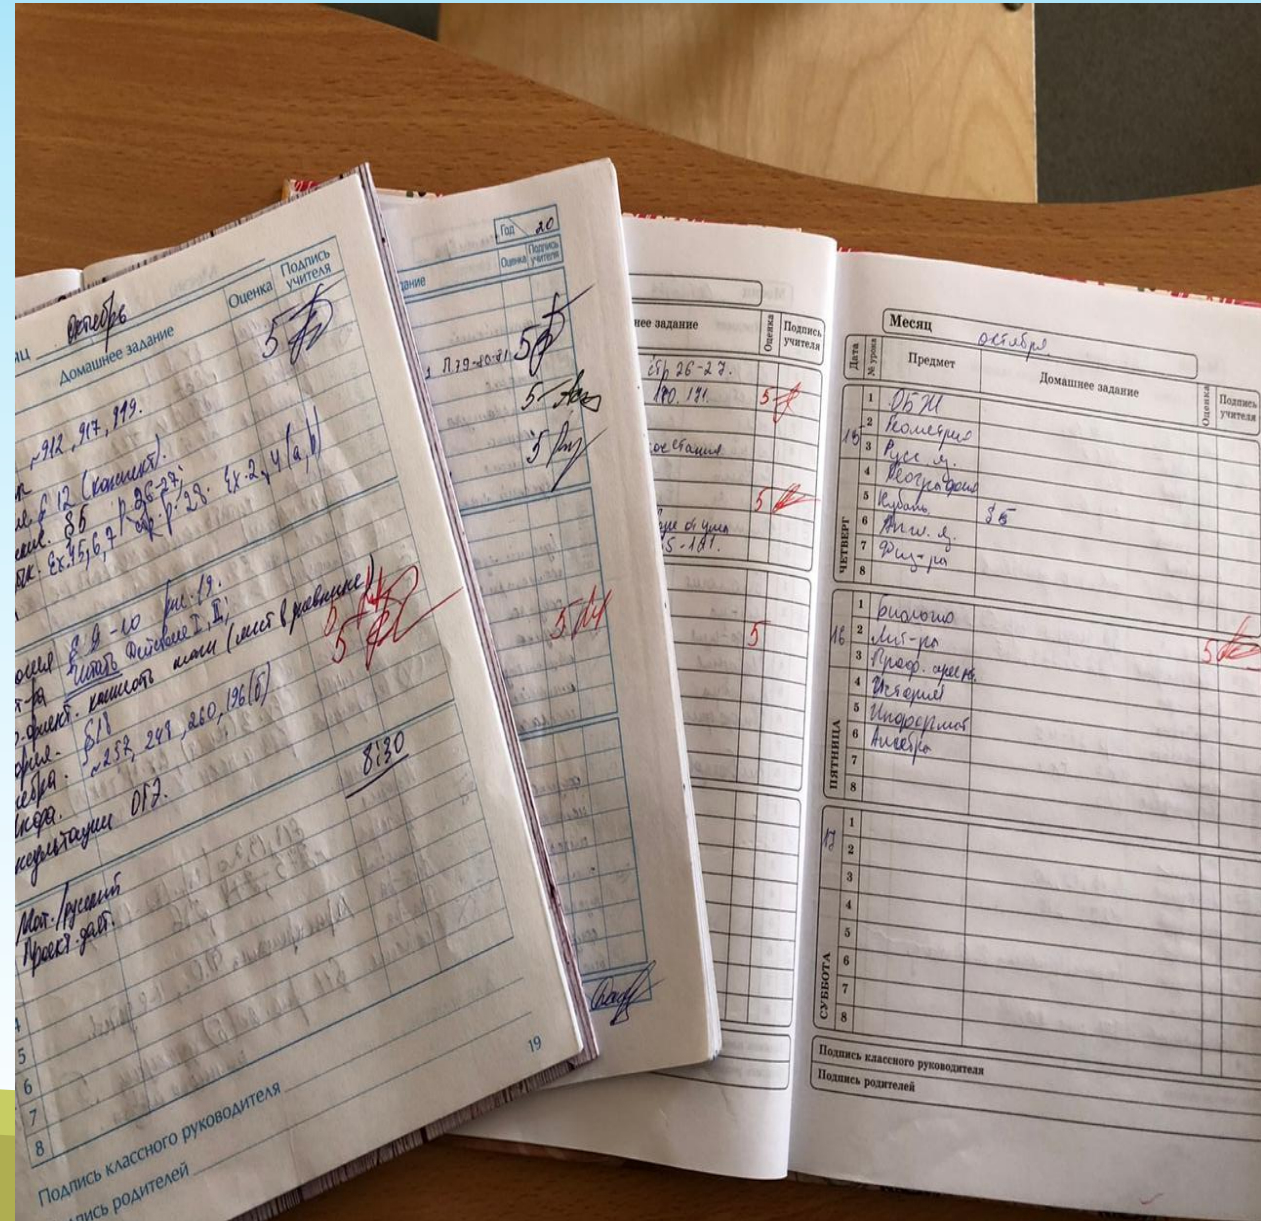 октябрь
Домашнее задание
Оценка
Подпись учителя
5
~912, 917, 919.
§ 12 (конспект).
§5 р. 26-27;
Ex. 45,6,7 р. 28. Ex. 2, 4 (a, b)
§ 9-10 рис. 19.
т-ра Читать действие I, II;
(лист в дневнике)
5
§11
~257, 248, 260, 196(б)
консультации ОГЭ.
8:30
Мат./русский
Проект. деят.
5
6
7
8
19
Подпись классного руководителя
пись родителей
Год 20
Оценка
Подпись учителя
П.79-80-81
5
5
5
5
нее задание
Оценка
Подпись учителя
стр 26-27.
190, 191.
5
5
5
Месяц
октября
Дата
№ урока
Предмет
Домашнее задание
Оценка
Подпись учителя
15
ЧЕТВЕРГ
1 ОБЖ
2 Геометрия
3 Русс. я.
4 География
5 Кубань §5
6 Англ. я.
7 Физ-ра
8
16
ПЯТНИЦА
1 Биология
2 Лит-ра 5
3 Проф. ориен.
4 История
5 Информат
6 Алгебра
7
8
17
СУББОТА
1
2
3
4
5
6
7
8
Подпись классного руководителя
Подпись родителей